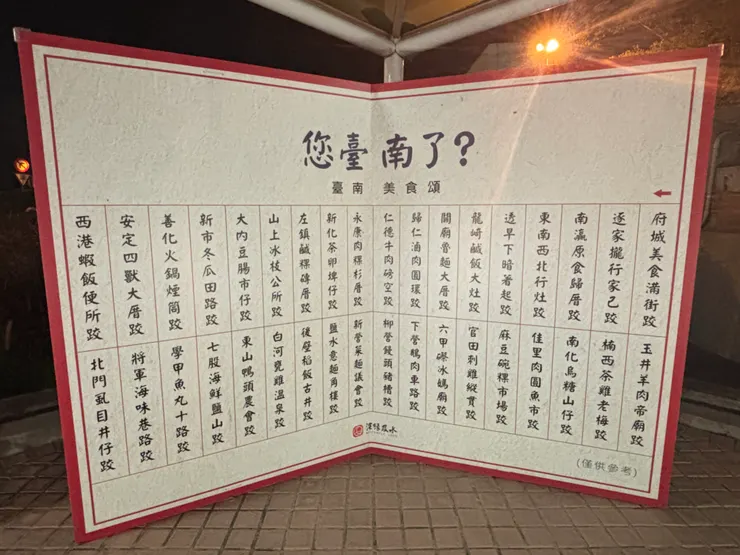 您臺南了?
臺南美食頌
府城美食滿街跤
逐家攏行家己跤
南瀛原食歸厝跤
東南西北行灶跤
透早下暗著起跤
龍崎鹹飯大灶跤
關廟魯麵大厝跤
歸仁滷肉圓環跤
仁德牛肉磅空跤
永康肉粿杉厝跤
新化茶卵埤仔跤
左鎮鹹粿磚厝跤
山上冰枝公所跤
大內豆腸市仔跤
新市冬瓜田路跤
善化火鍋煙筒跤
安定四獸大厝跤
西港蝦飯便所跤
玉井羊肉帝廟跤
楠西茶雞老梅跤
南化烏糖山仔跤
佳里肉圓魚市跤
麻豆碗粿市場跤
官田刺雞縱貫跤
六甲礤冰媽廟跤
下營鵝肉車路跤
柳營饅頭豬槽跤
新營菜麵議會跤
鹽水意麵角樓跤
後壁稻飯古井跤
白河甕雞溫泉跤
東山鴨頭農會跤
七股海鮮鹽山跤
學甲魚丸十路跤
將軍海味巷路跤
北門虱目井仔跤
(僅供參考)